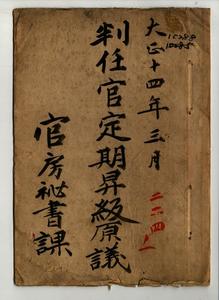 大正十四年三月
判任官定期昇級原議
官房祕書課
二二四ノ一